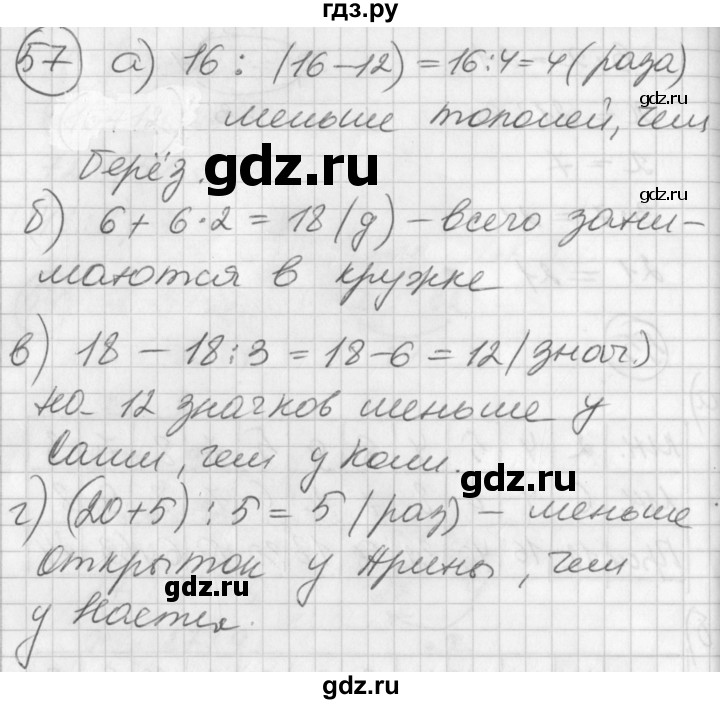 гдз.ру
57 а) 16 : (16-12) = 16:4=4 (раза)
gdz.ru
меньше тополей, чем
gdz.ru
берёз.
gdz.ru
б) 6 + 6·2 = 18 (д) - всего зани-
маются в кружке
в) 18 - 18:3 = 18-6 = 12 (знач.)
на 12 значков меньше у
Саши, чем у Коли.
gdz.ru
г) (20+5) : 5 = 5 (раз) - меньше
открыток у Арины, чем
gdz.ru
gdz.ru
у Насти.
gdz.ru